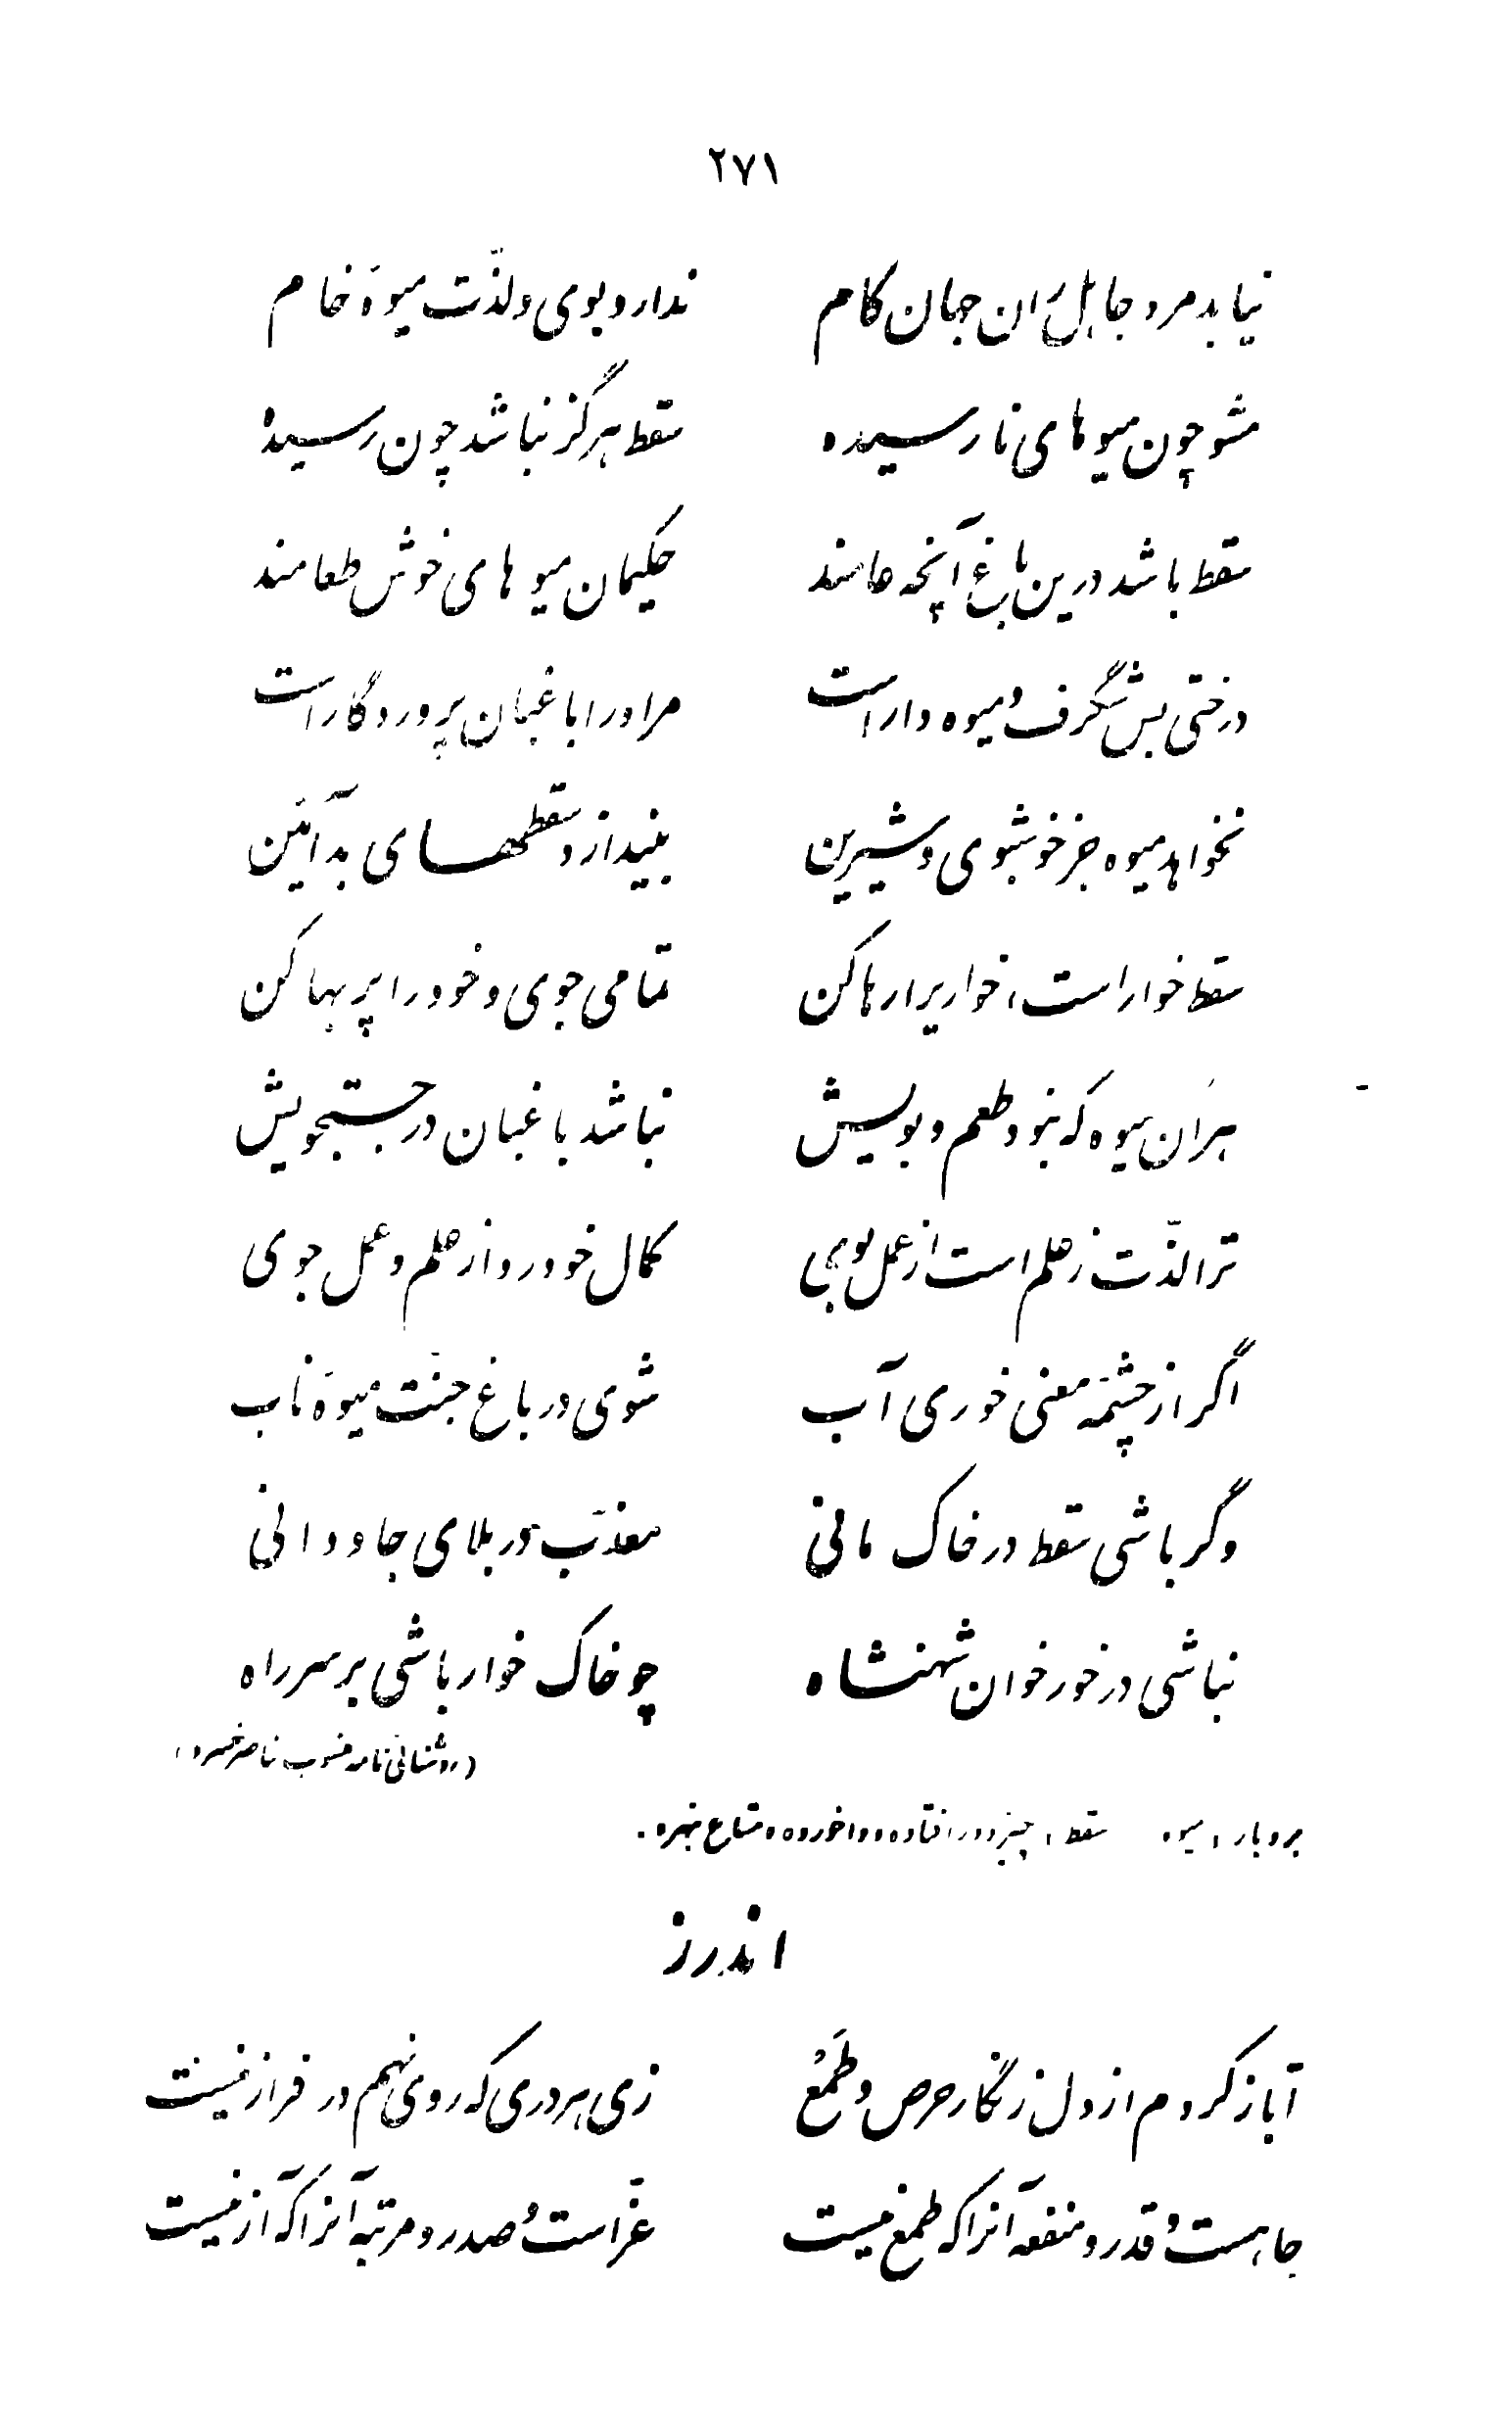 ۲۷۱
نیابد مرد جاهل زان جهان کام ندارد بوی و لذّت میوهٔ خام
مشو چون میوهای نارسیده سقط هرگز نباشد چون رسیده
سقط باشد درین باغ آنچه خامند حکیمان میوهای خوش طعامند
درختی بس شگرف و میوه دار است مر او را باغبان پروردگار است
نخواهد میوه جز خوشبوی و شیرین بیندازد سقطهای بدآئین
سقط خوار است، خواری را رها کن تمامی جوی و خود را پر بها کن
هرآن میوه که نبود طعم و بویش نباشد باغبان در جستجویش
ترا لذّت ز علم است از عمل بوی کمال خود رو از علم و عمل جوی
اگر از چشمهٔ معنی خوری آب شوی در باغ جنّت میوهٔ ناب
وگر باشی سقط در خاک مانی معذّب در بلای جاودانی
نباشی در خور خوان شهنشاه چو خاک خوار باشی بر سر راه
(روشنائی نامه منسوب بناصر خسرو)
بر و بار: میوه سقط: چیز دور افتاده و واخورده و متاع نبهره.
اندرز
تا باز کردم از دل زنگار حرص و طَمَع زی هر دری که روی نهم در فراز نیست
جاهست و قدر و منفعه آنرا که طمع نیست عزّ است و صدر و مرتبه آنرا که آز نیست